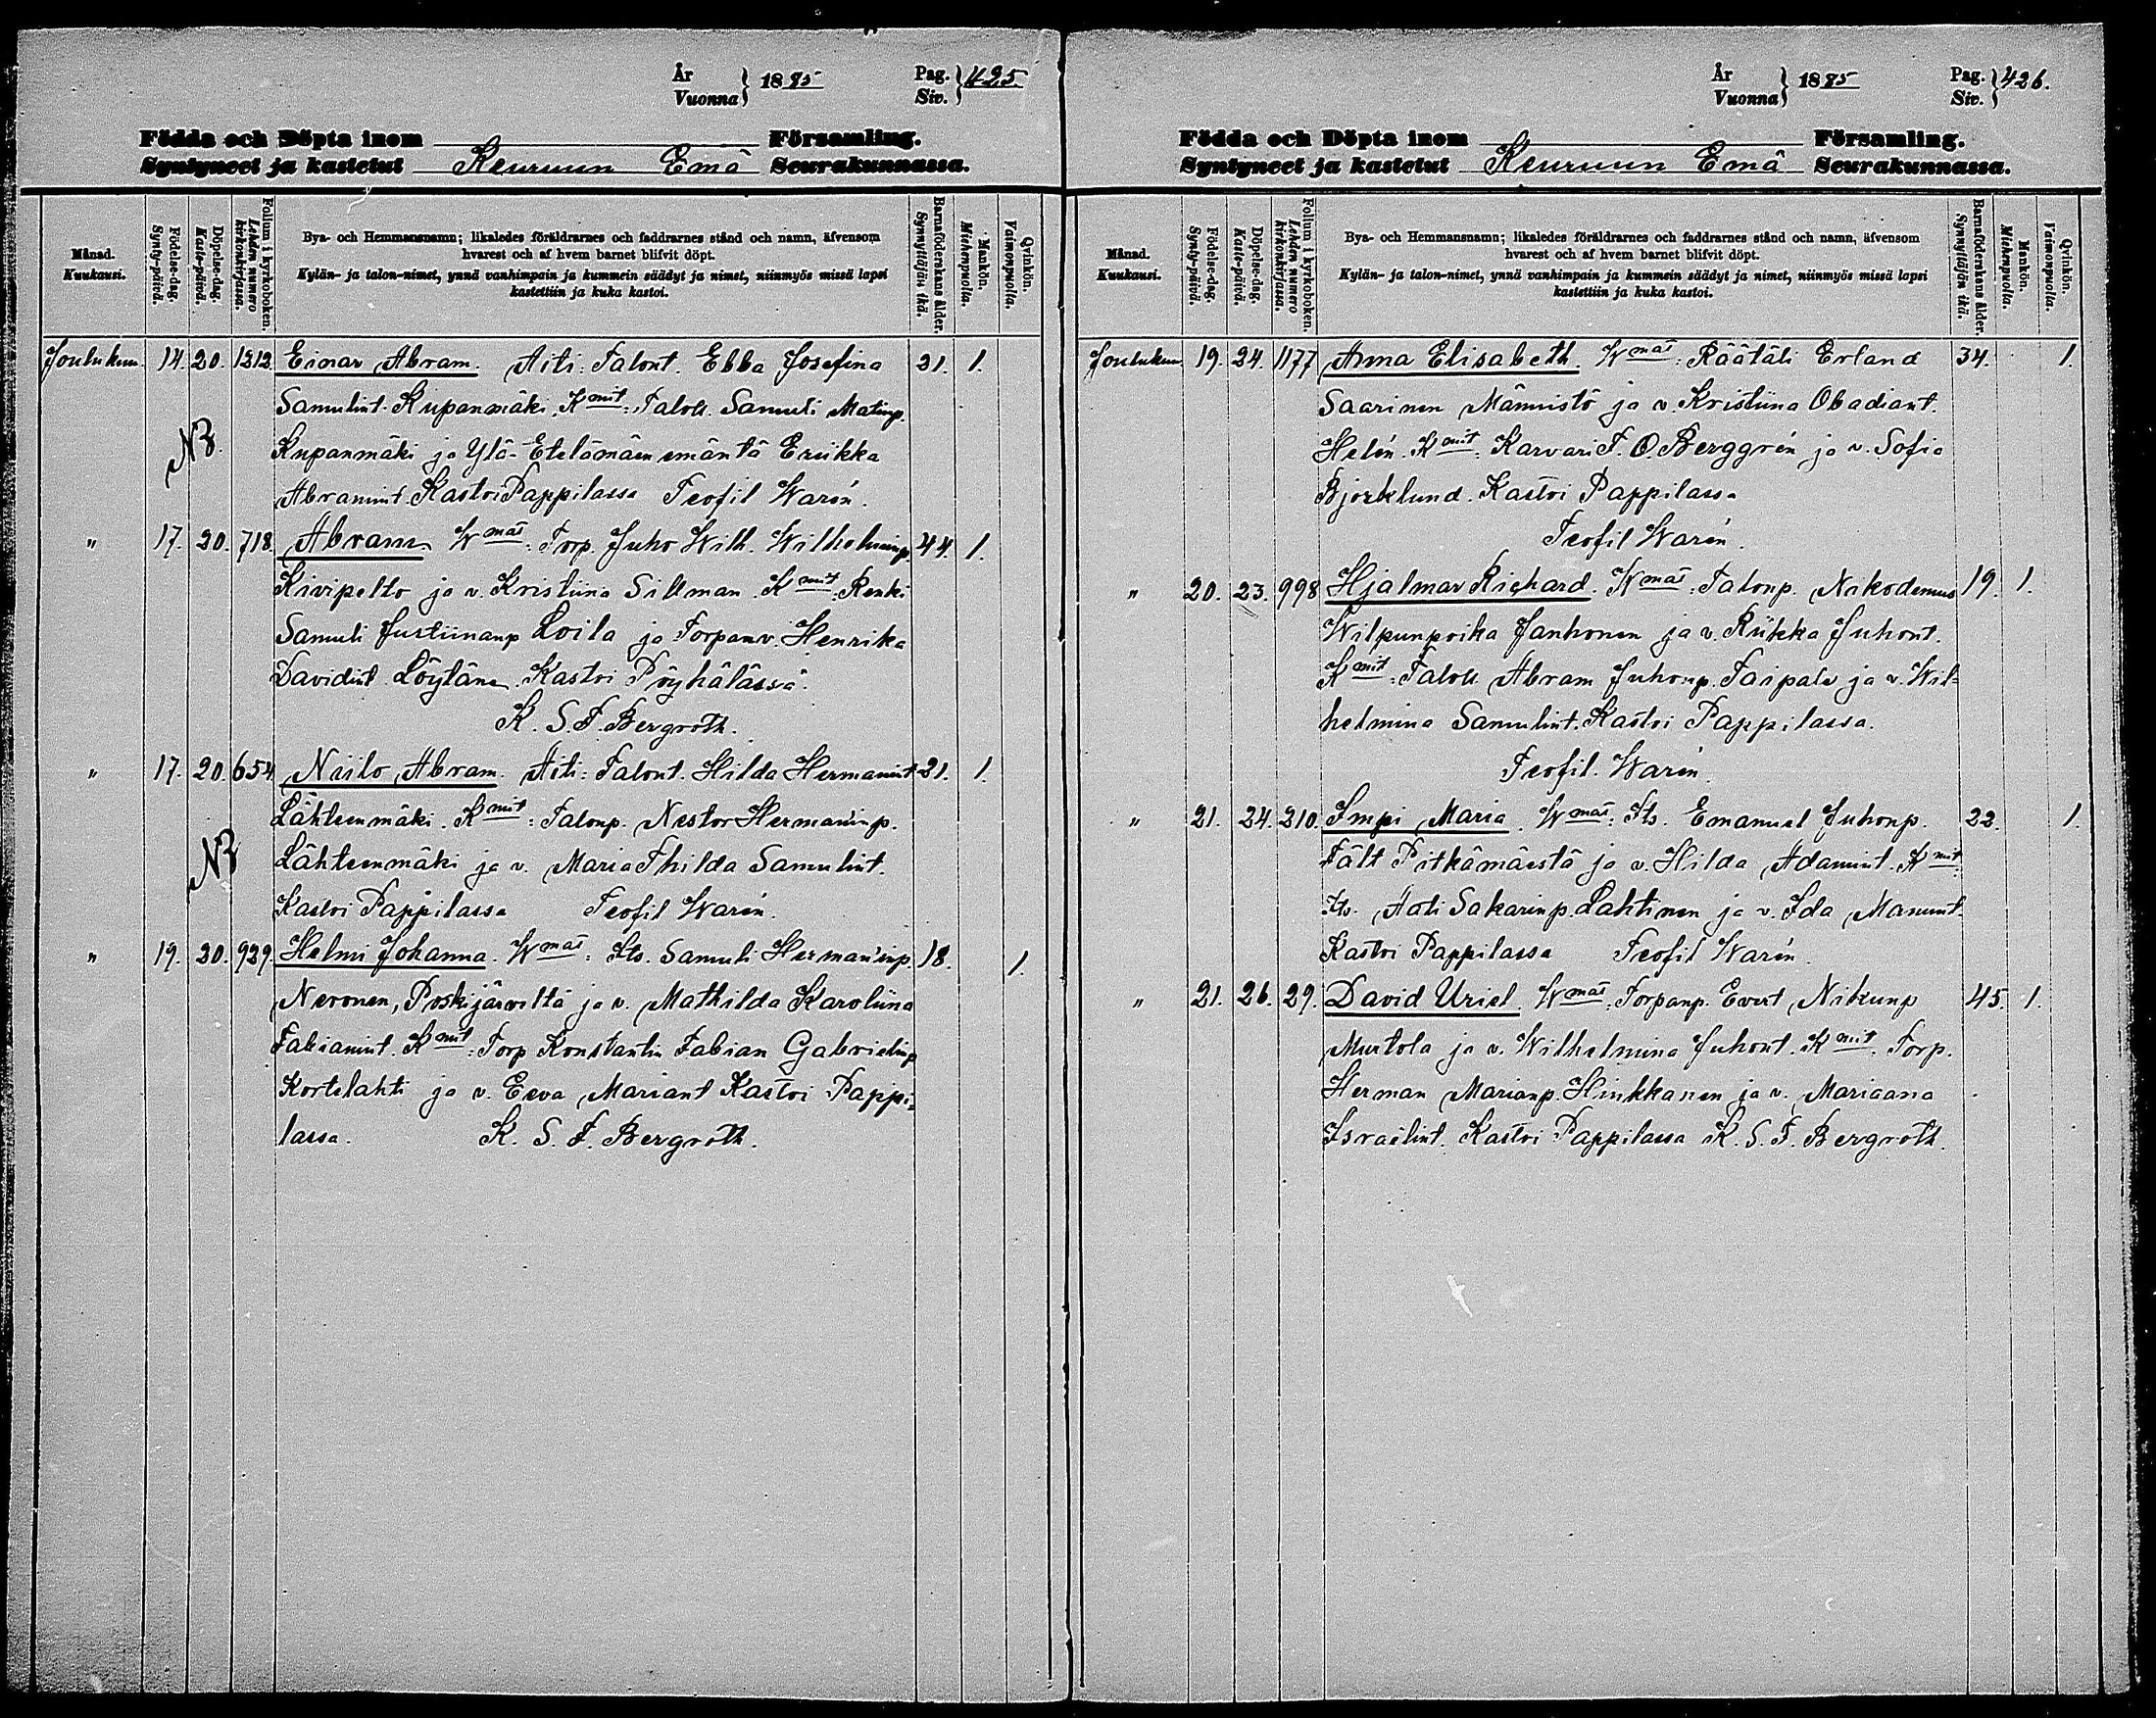 År
Vuonna } 1885 Pag.
Siv. } 425
Födda och Döpta inom Församling.
Syntyneet ja kastetut Keuruun Emä Seurakunnassa.
Månad.
Kuukausi.
Födelse-dag.
Synty-päivä.
Döpelse-dag.
Kaste-päivä.
Folium i kyrkoboken.
Lehden numero
kirkonkirjassa.
Bya- och Hemmansnamn; likaledes föräldrarnes och faddrarnes stånd och namn, äfvensom
hvarest och af hvem barnet blifvit döpt.
Kylän- ja talon-nimet, ynnä vanhimpain ja kummein säädyt ja nimet, niinmyös missä lapsi
kastettiin ja kuka kastoi.
Barnaföderskans ålder.
Synnyttäjän ikä.
Mankön.
Miehenpuolta.
Qvinkön.
Vaimonpuolta.
Joulukuu 14. 20. 1212 Einar Abram. Äiti: Talont. Ebba Josefina 21. 1.
Samulint. Kupanmäki. Kmit: Taloll. Samuli Matinp.
NB. Kupanmäki ja Ylä-Etelämäen emäntä Eriikka
Abramint. Kastoi Pappilassa Teofil Warén.
" 17. 20. 718. Abram Wmat: Torp. Juho Wilh. Wilhelminp. 44. 1.
Kivipelto ja v. Kristiina Sillman. Kmit: Renki
Samuli Justiinanp Loila ja Torpanv. Henrika
Davidint. Löytäne. Kastoi Pöyhälässä.
K. S. F. Bergroth.
" 17. 20. 654. Niilo Abram. Äiti: Talont. Hilda Hermanint 21. 1.
Lähteenmäki. Kmit: Talonp. Nestor Hermaninp.
NB Lähteenmäki ja v. Maria Thilda Samulint.
Kastoi Pappilassa Teofil Warén.
" 19. 20. 929. Helmi Johanna. Wmat: Its. Samuli Hermaninp. 18. 1.
Neronen, Poskijärveltä ja v. Mathilda Karoliina
Fabianint. Kmit: Torp Konstantin Fabian Gabrielinp
Kortelahti ja v. Eeva Mariant Kastoi Pappi-
lassa. K. S. F. Bergroth.
År
Vuonna } 1885 Pag.
Siv. } 426.
Födda och Döpta inom Församling.
Syntyneet ja kastetut Keuruun Emä Seurakunnassa.
Månad.
Kuukausi.
Födelse-dag.
Synty-päivä.
Döpelse-dag.
Kaste-päivä.
Folium i kyrkoboken.
Lehden numero
kirkonkirjassa.
Bya- och Hemmansnamn; likaledes föräldrarnes och faddrarnes stånd och namn, äfvensom
hvarest och af hvem barnet blifvit döpt.
Kylän- ja talon-nimet, ynnä vanhimpain ja kummein säädyt ja nimet, niinmyös missä lapsi
kastettiin ja kuka kastoi.
Barnaföderskans ålder.
Synnyttäjän ikä.
Mankön.
Miehenpuolta.
Qvinkön.
Vaimonpuolta.
Joulukuu 19. 24. 1177 Anna Elisabeth. Wmat: Räätäli Erland 34. 1.
Saarinen Männistö ja v. Kristiina Obadiant.
Helén. Kmit: Karvari F. O. Berggrén ja v. Sofia
Bjorklund. Kastoi Pappilassa
Teofil Warén.
" 20. 23. 998 Hjalmar Richard. Wmat: Talonp. Nikodemus 19. 1.
Wilpunpoika Janhonen ja v. Riikka Juhont.
Kmit: Taloll. Abram Juhonp. Taipale ja v. Wil-
helmina Samulint. Kastoi Pappilassa.
Teofil. Warén.
" 21. 24. 210. Impi Maria. Wmat: Its. Emanuel Juhonp. 22. 1.
Fält Pitkämäestä ja v. Hilda Adamint. Kmit:
Its. Aati Sakarinp. Lahtinen ja v. Ida Manunt.
Kastoi Pappilassa Teofil Warén.
" 21. 26. 29. David Uriel. Wmat: Torpanp. Evert Nikunp 45. 1.
Murtola ja v. Wilhelmina Juhont. Kmit. Torp.
Herman Marianp. Hinkkanen ja v. Mariaana
Israelint. Kastoi Pappilassa K. S. F. Bergroth.